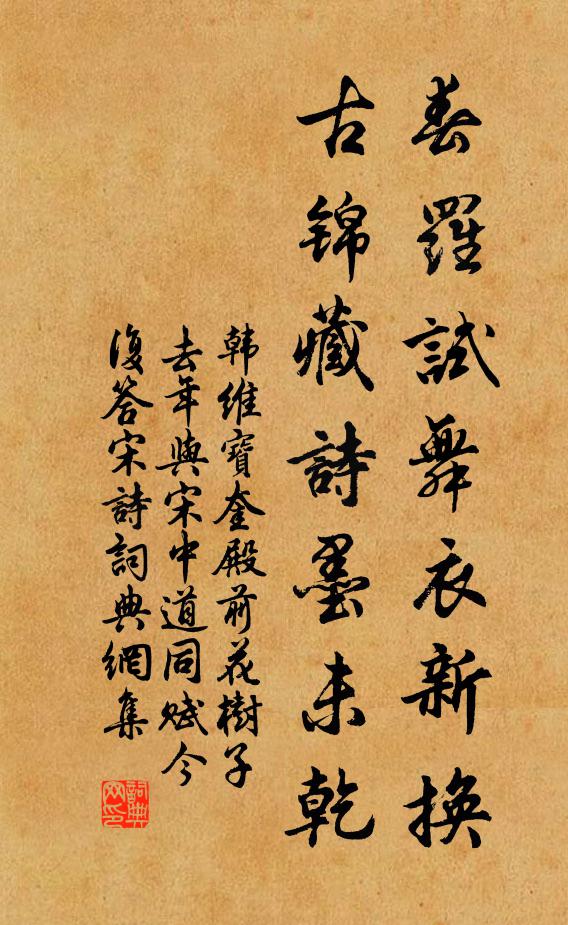 春羅試舞衣新換
古锦藏詩墨未乾
韩維寶奎殿前花樹子
去年與宋中道同赋今
復答宋詩詞典網集
詞典
网印